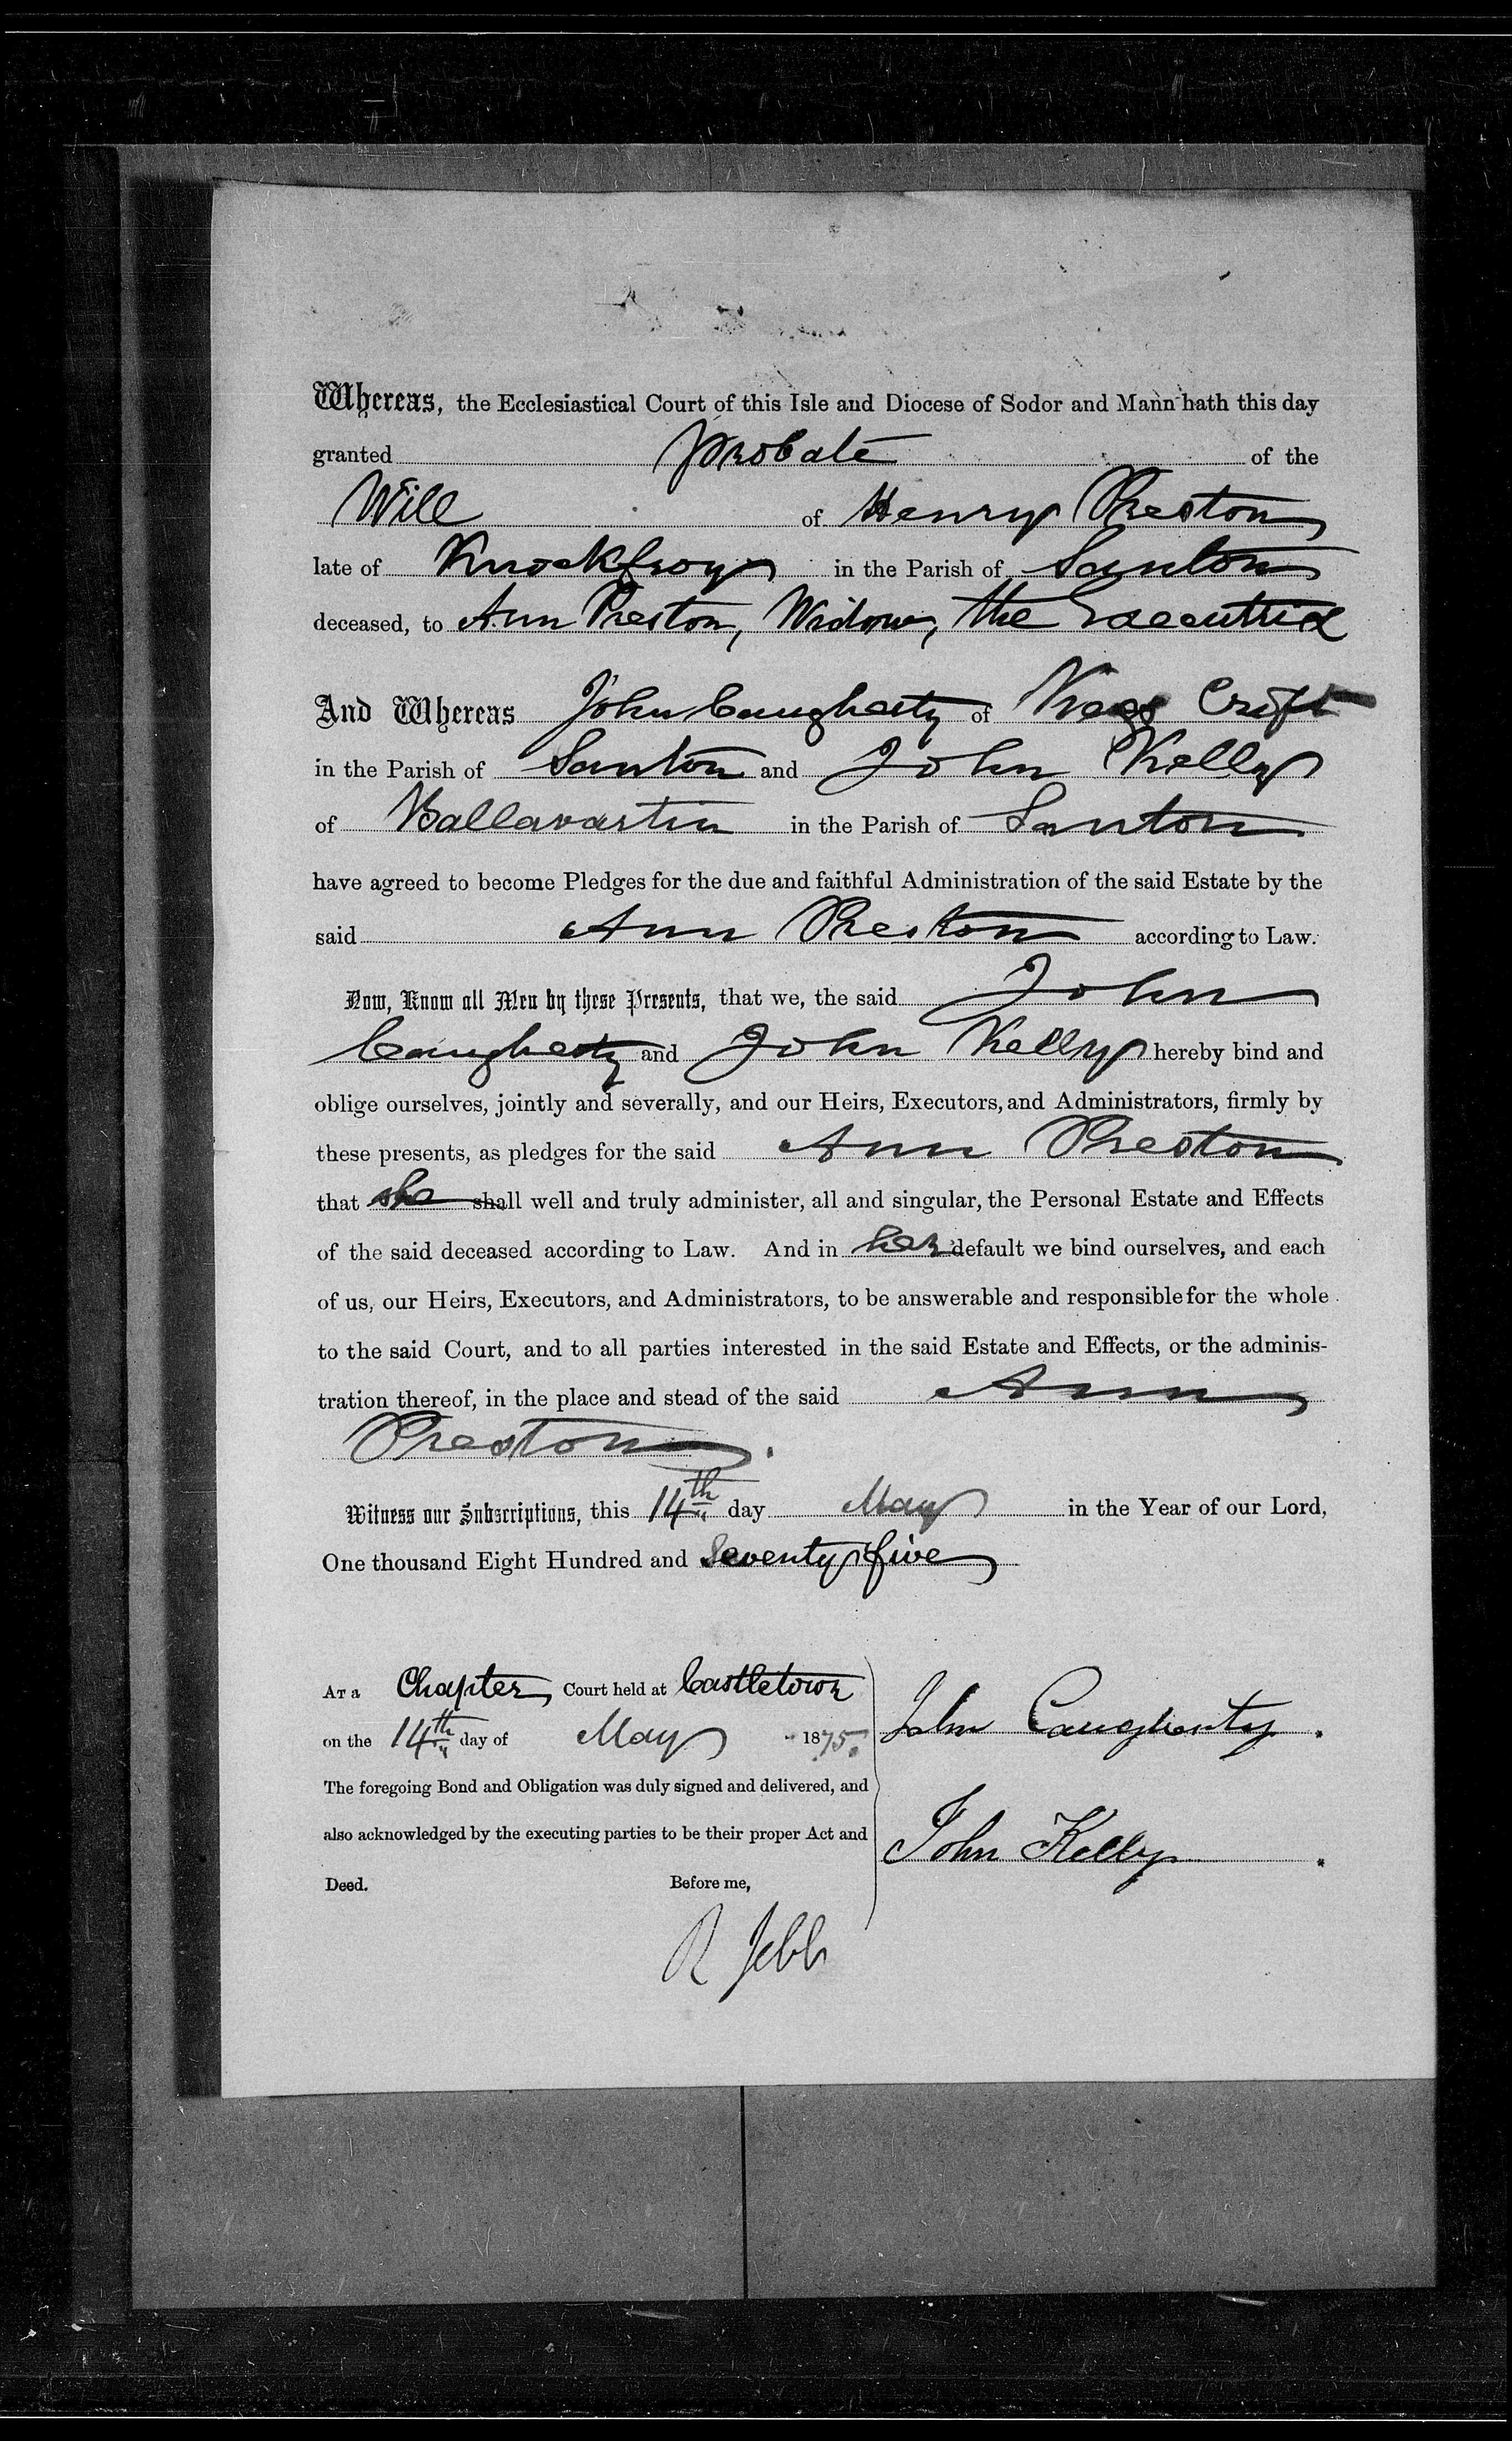 Whereas, the Ecclesiastical Court of this Isle and Diocese of Sodor and Mann hath this day
granted probate of the
Will of Henry Preston
late of Knockfroy in the Parish of Santon
deceased, to Ann Preston, Widow, the Executrix
And Whereas John Caugherty of Croft
in the Parish of Santon and John Kelly
of Ballavartin in the Parish of Santon
have agreed to become Pledges for the due and faithful Administration of the said Estate by the
said Ann Preston according to Law.
Now, Know all Men by these Presents, that we, the said John
Caugherty and John Kelly hereby bind and
oblige ourselves, jointly and severally, and our Heirs, Executors, and Administrators, firmly by
these presents, as pledges for the said Ann Preston
that she shall well and truly administer, all and singular, the Personal Estate and Effects
of the said deceased according to Law. And in her default we bind ourselves, and each
of us, our Heirs, Executors, and Administrators, to be answerable and responsible for the whole
to the said Court, and to all parties interested in the said Estate and Effects, or the adminis-
tration thereof, in the place and stead of the said Ann
Preston.
Witness our Subscriptions, this 14th day May in the Year of our Lord,
One thousand Eight Hundred and Seventy five
AT a Chapter Court held at Castletown
on the 14th day of May 1875.
The foregoing Bond and Obligation was duly signed and delivered, and
also acknowledged by the executing parties to be their proper Act and
Deed. Before me,
R Jebb
John Caugherty.
John Kelly.